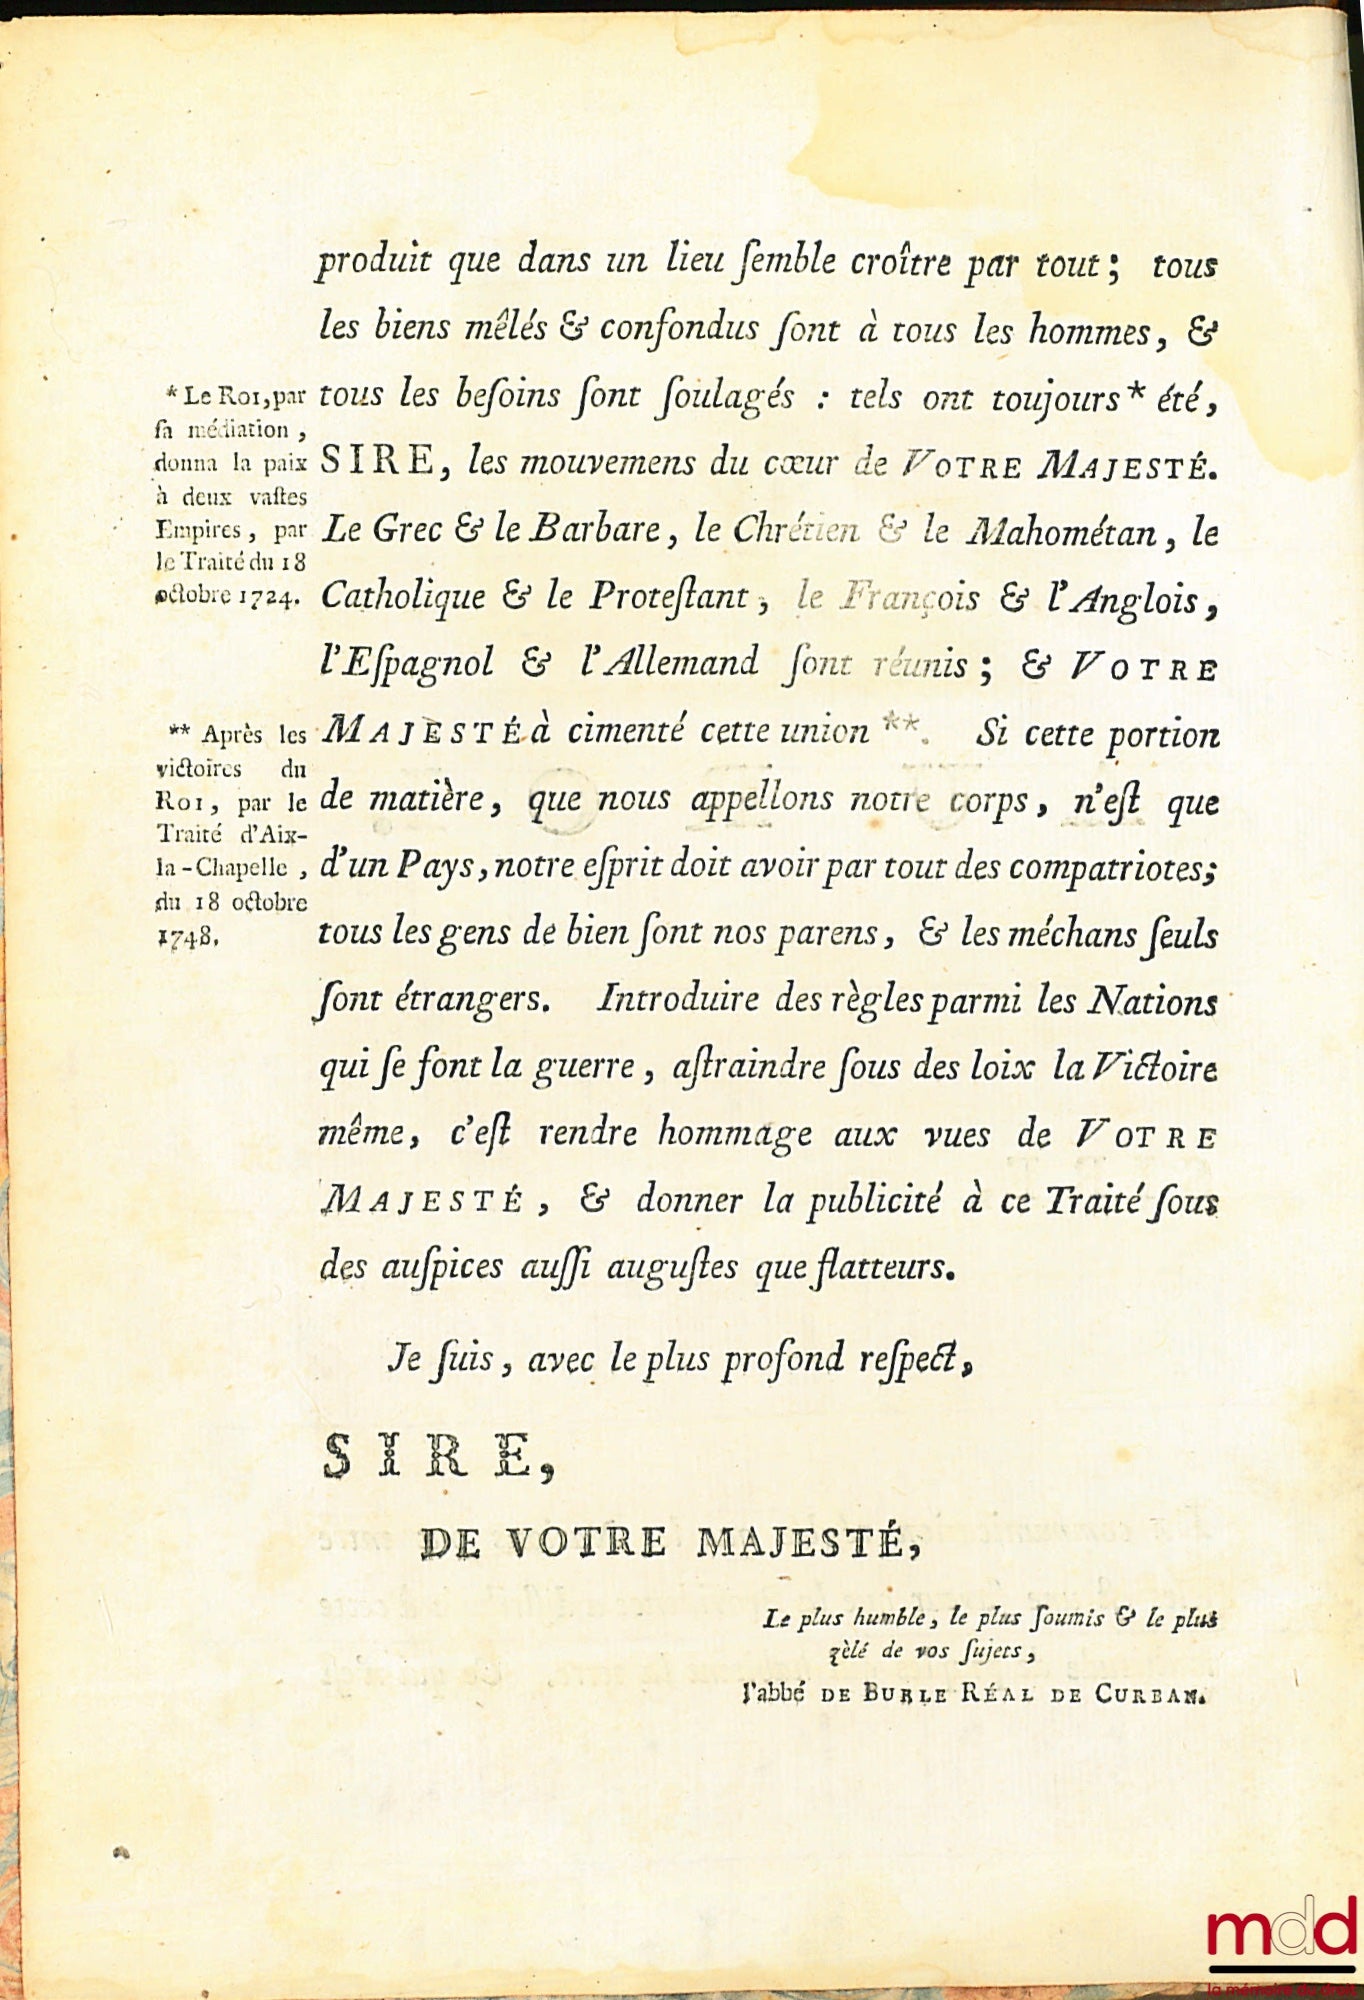 produit que dans un lieu ſemble croître par tout ; tous
les biens mêlés & confondus ſont à tous les hommes, &
tous les beſoins ſont ſoulagés : tels ont toujours * été,
SIRE, les mouvemens du cœur de VOTRE MAJESTÉ.
Le Grec & le Barbare, le Chrétien & le Mahométan, le
Catholique & le Proteſtant, le François & l'Anglois,
l'Eſpagnol & l'Allemand ſont réunis ; & VOTRE
MAJESTÉ à cimenté cette union **. Si cette portion
de matière, que nous appellons notre corps, n'eſt que
d'un Pays, notre eſprit doit avoir par tout des compatriotes;
tous les gens de bien ſont nos parens, & les méchans ſeuls
ſont étrangers. Introduire des règles parmi les Nations
qui ſe font la guerre, aſtraindre ſous des loix la Victoire
même, c'eſt rendre hommage aux vues de VOTRE
MAJESTÉ, & donner la publicité à ce Traité ſous
des auſpices auſſi auguſtes que flatteurs.
* Le ROI, par
ſa médiation,
donna la paix
à deux vaſtes
Empires, par
le Traité du 18
octobre 1724.
** Après les
victoires du
ROI, par le
Traité d'Aix-
la-Chapelle,
du 18 octobre
1748.
Je ſuis, avec le plus profond reſpect,
SIRE,
DE VOTRE MAJESTÉ,
Le plus humble, le plus ſoumis & le plus
zèlé de vos ſujets,
l'abbé DE BURLE RÉAL DE CURBAN.
mdd
la mémoire du droit